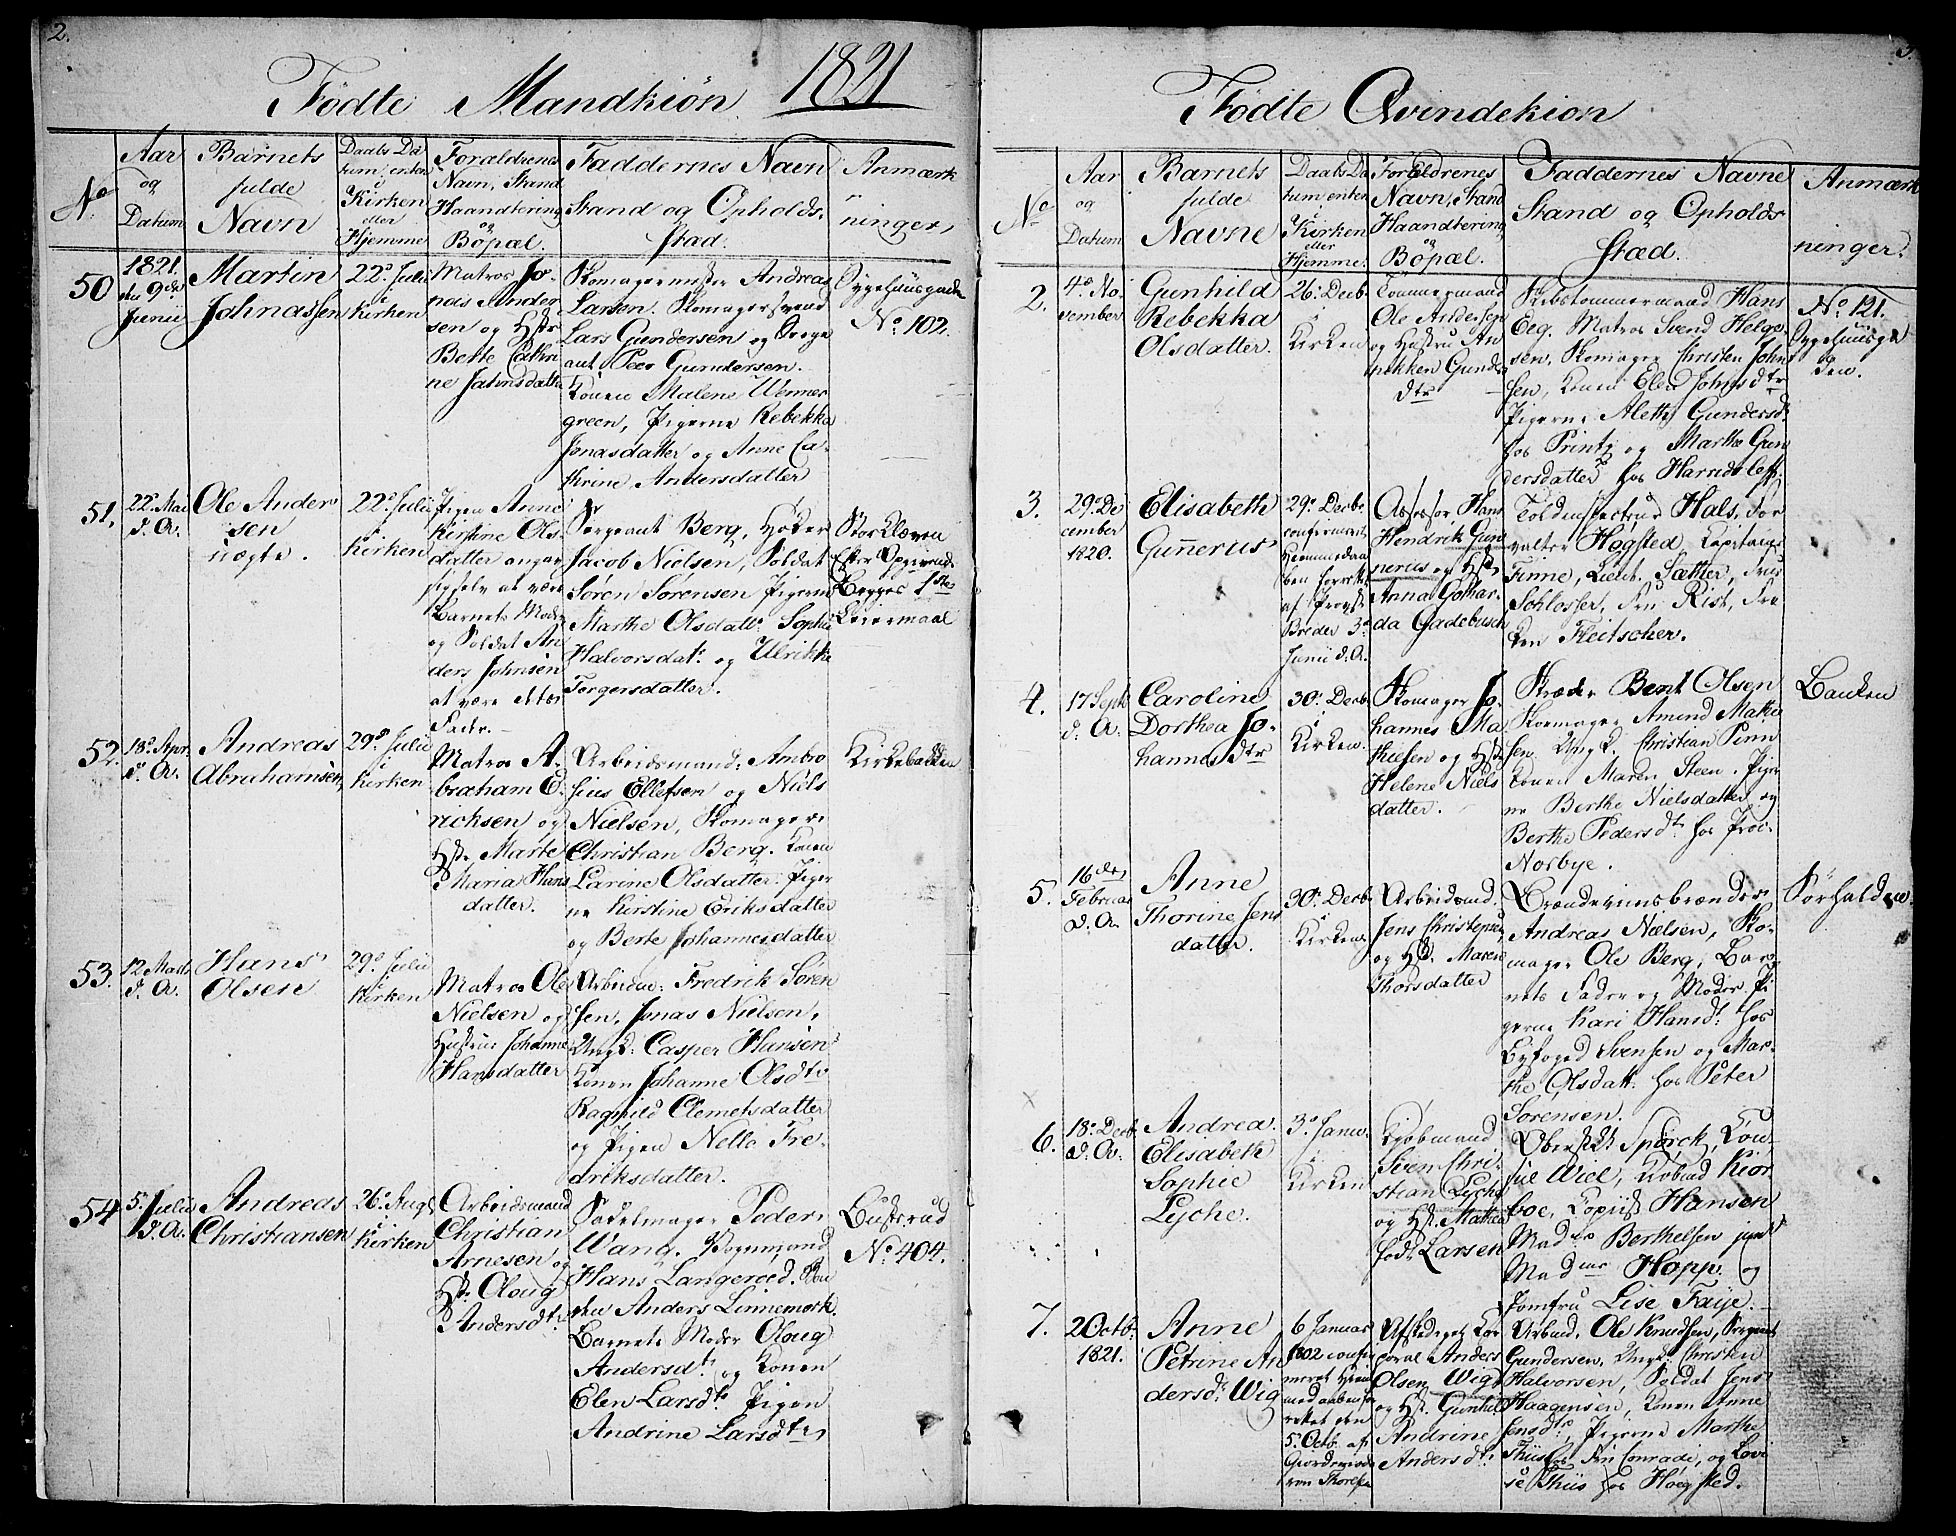 2.
Fødte Mandkiön 1821
No
Aar
og
Datum
Barnets
fulde
Navn
Daabs Da
tum, enten
i
Kirken
eller
Hjemme
Forældrenes
Navn, Stand
Haandtering
og
Bopæl.
Faddernes Navn
Stand og Opholds
Stad.
Anmærk
ninger,
50
1821.
den 9de
Junii
Martin
Johnassen
22de Julii
i
Kirken
Matros Jo-
nas Ander
sen og Hstr
Bette Cathri
ne Jahnsdatter
Skomagermester Andreas
Larsen. Skomagersvend
Lars Gundersen og
Peer Gundersen.
Konen Malene Wenner
green, Pigerne Rebekka
Jonasdatter og Anne Ca-
thrine Andersdatter
Sygehuusgaden
No 102.
51,
22de Mai
d. A.
Ole Ander
sen
uægte.
22de Julii
i
Kirken
Pigen Anne
Kirstine Ols
datter angav
sig selv at være
Barnets Moder
og Soldat An
ders Johnsen
at være dets
Fader.
Sergeant Berg, Høker
Jacob Nielsen, Soldat
Søren Sørensen Pigerne
Marthe Olsdatr. Sophie
Halvorsdatr. og Ulrikke
Torgersdatter.
Stor Kleven
Efter Opgivende
Begges 1ste
Leiermaal
52.
18de Apr.
d. A.
Andreas
Abrahamsen,
29de Julii
i
Kirken
Matros A-
braham E-
richsen og
Hstr. Marte
Maria Hans
datter.
Arbeidsmand: Ambro
sius Ellefsen og Niels
Nielsen, Skomager
Christian Berg. Konen
Larine Olsdatter. Piger
ne Kirstine Eriksdatter
og Berte Johannesdatter
Kirkebakken
53.
12 Marts
d. A.
Hans
Olsen
29de Julii
i
Kirken
Matros Ole
Nielsen og
Hustrue Johanne
Hansdatter
Arbeidsm: Fredrik Sören
sen, Jonas Nielsen,
Ungk: Casper Hansen
Konen Johanne Olsdtr
Ragnild Clemetsdatter
og Pigen Nella Fre-
driksdatter.
54
5. Julii
d. A.
Andreas
Christiansen
26de Aug.
i
Kirken
Arbeidsmand
Christian
Arnesen og
Hstr. Oloug
Andersdtr
Sadelmager Peder
Wang. Vognmand
Hans Langeroed. Bon
den Anders Linnemork.
Barnets Moder Oloug
Andersdtr. og Konen
Elen Larsdtr. Pigen
Andrine Larsdtr.
Busterud
No. 404.
3.
Fødte Qvindekion
No
Aar
og
Datum
Barnets
fulde
Navne
Daabs Da
tum, enten
i
Kirken
eller
Hjemme.
Forældrenes
Navn, Stand
Haandtering
og
Bopæl.
Faddernes Navne
Stand og Opholds
Stæd.
Anmærk
ninger.
2.
4de No.
vember
Gunhild
Rebekka
Olsdatter.
26. Decb.
i
Kirken
Tømmermand
Ole Andersen
og Hustru An
nikken Gunder
dtr
Skibstømmermand Hans
Eeg. Matros Svend Helge-
sen, Skomager Christen John
sen, Konen Elen Johnsdtr
Pigerne Alethe Gundersd.
hos Printz og Marthe Gun
dersdatter hos Harnisleff
No. 121.
Sygehuusga
den.
3.
29de De
cember
1820.
Elisabeth
Gunnerus
29de Decbr.
confirmeret
Hiemmedaa
ben forrettet
af Provst
Breder 3de
Junii d. A.
Assessor, Hans
Hendrik Gun
nerus og Hst.
Anna Gothar-
da Gadebusch
Toldinspecteur Hals. For
valter Høgsted, Kapitaine
Finne, Lieut. Sætter, Frue
Schlosser, Fru Rist, Frø
ken Fleischer.
4.
17 Sept
d. A.
Caroline
Dorthea Jo-
hannesdtr
30. Decb.
i
Kirken.
Skomager Jo-
hannes Ma
thiesen og Hst.
Helene Niels
datter.
Skræder Bent Olsen
Skomager Amund Mathi
sen, Ungk. Christian Pinn
Konen Maren Steen. Piger
ne Berthe Nielsdatter og
Berthe Pedersdtr. hos Proc.
Norbye.
Banken
5.
16de
Februar
d. A.
Anne
Thorine Jens
datter.
30. Decb.
i
Kirken
Arbeidsmd.
Jens Christensen
og Hst. Maren
Thorsdatter
Brændeviinsbrænder
Andreas Nielsen, Sko-
mager Ole Berg, Bar-
nets Fader og Moder. Pi
gerne Kari Hansdt. hos
Byfoged Svensen og Mar-
the Olsdatt. hos Peter
Sorensen.
Sörhalden.
6.
18. Decb.
d. A.
Andrea
Elisabeth
Sophie
Lyche.
3. Janu.
i
Kirken
Kjøbmand
Sven Chri-
stian Lyche
og Hst. Mathea
fød Larsen
Oberstlt. Spörck, Kon-
sul Wiel, Kiøbmd Kior
boe, Kopiist Hansen
Madme Berthelsen junr
Madme Hopp og
Jomfru Lise Faye.
7.
2 Octob.
1821.
Anne
Petrine An
dersd. Wig
6 Januar
1802 confir
meret Hiem
med aaben for
rettet den
5. Octb. af
Giordemode
ren
Afskediget Kor
poral Anders
Olsen Wig
og Hst. Gunhild
Andrine
Andersdtr.
Arbmd. Ole Knudsen, Sergeant
Gundersen, Ungk. Christen
Halvorsen, Soldat Jens
Haagensen, Konen Anne
Jensdtr, Pigerne Marthe
Thiis hos Fru Conradi, og Lovi
se Thiis hos Høegsted.